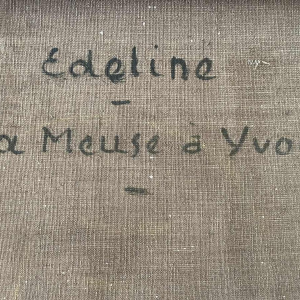 Edeline
-
a Meuse à Yvo
-